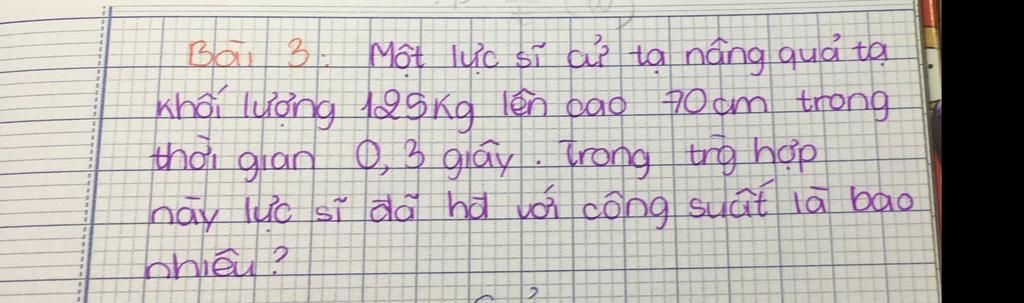 Bài 3: Một lực sĩ cử tạ nâng quả tạ
khối lượng 125kg lên cao 70cm trong
thời gian 0,3 giây. Trong trg hợp
này lực sĩ đã hđ với công suất là bao
nhiêu?